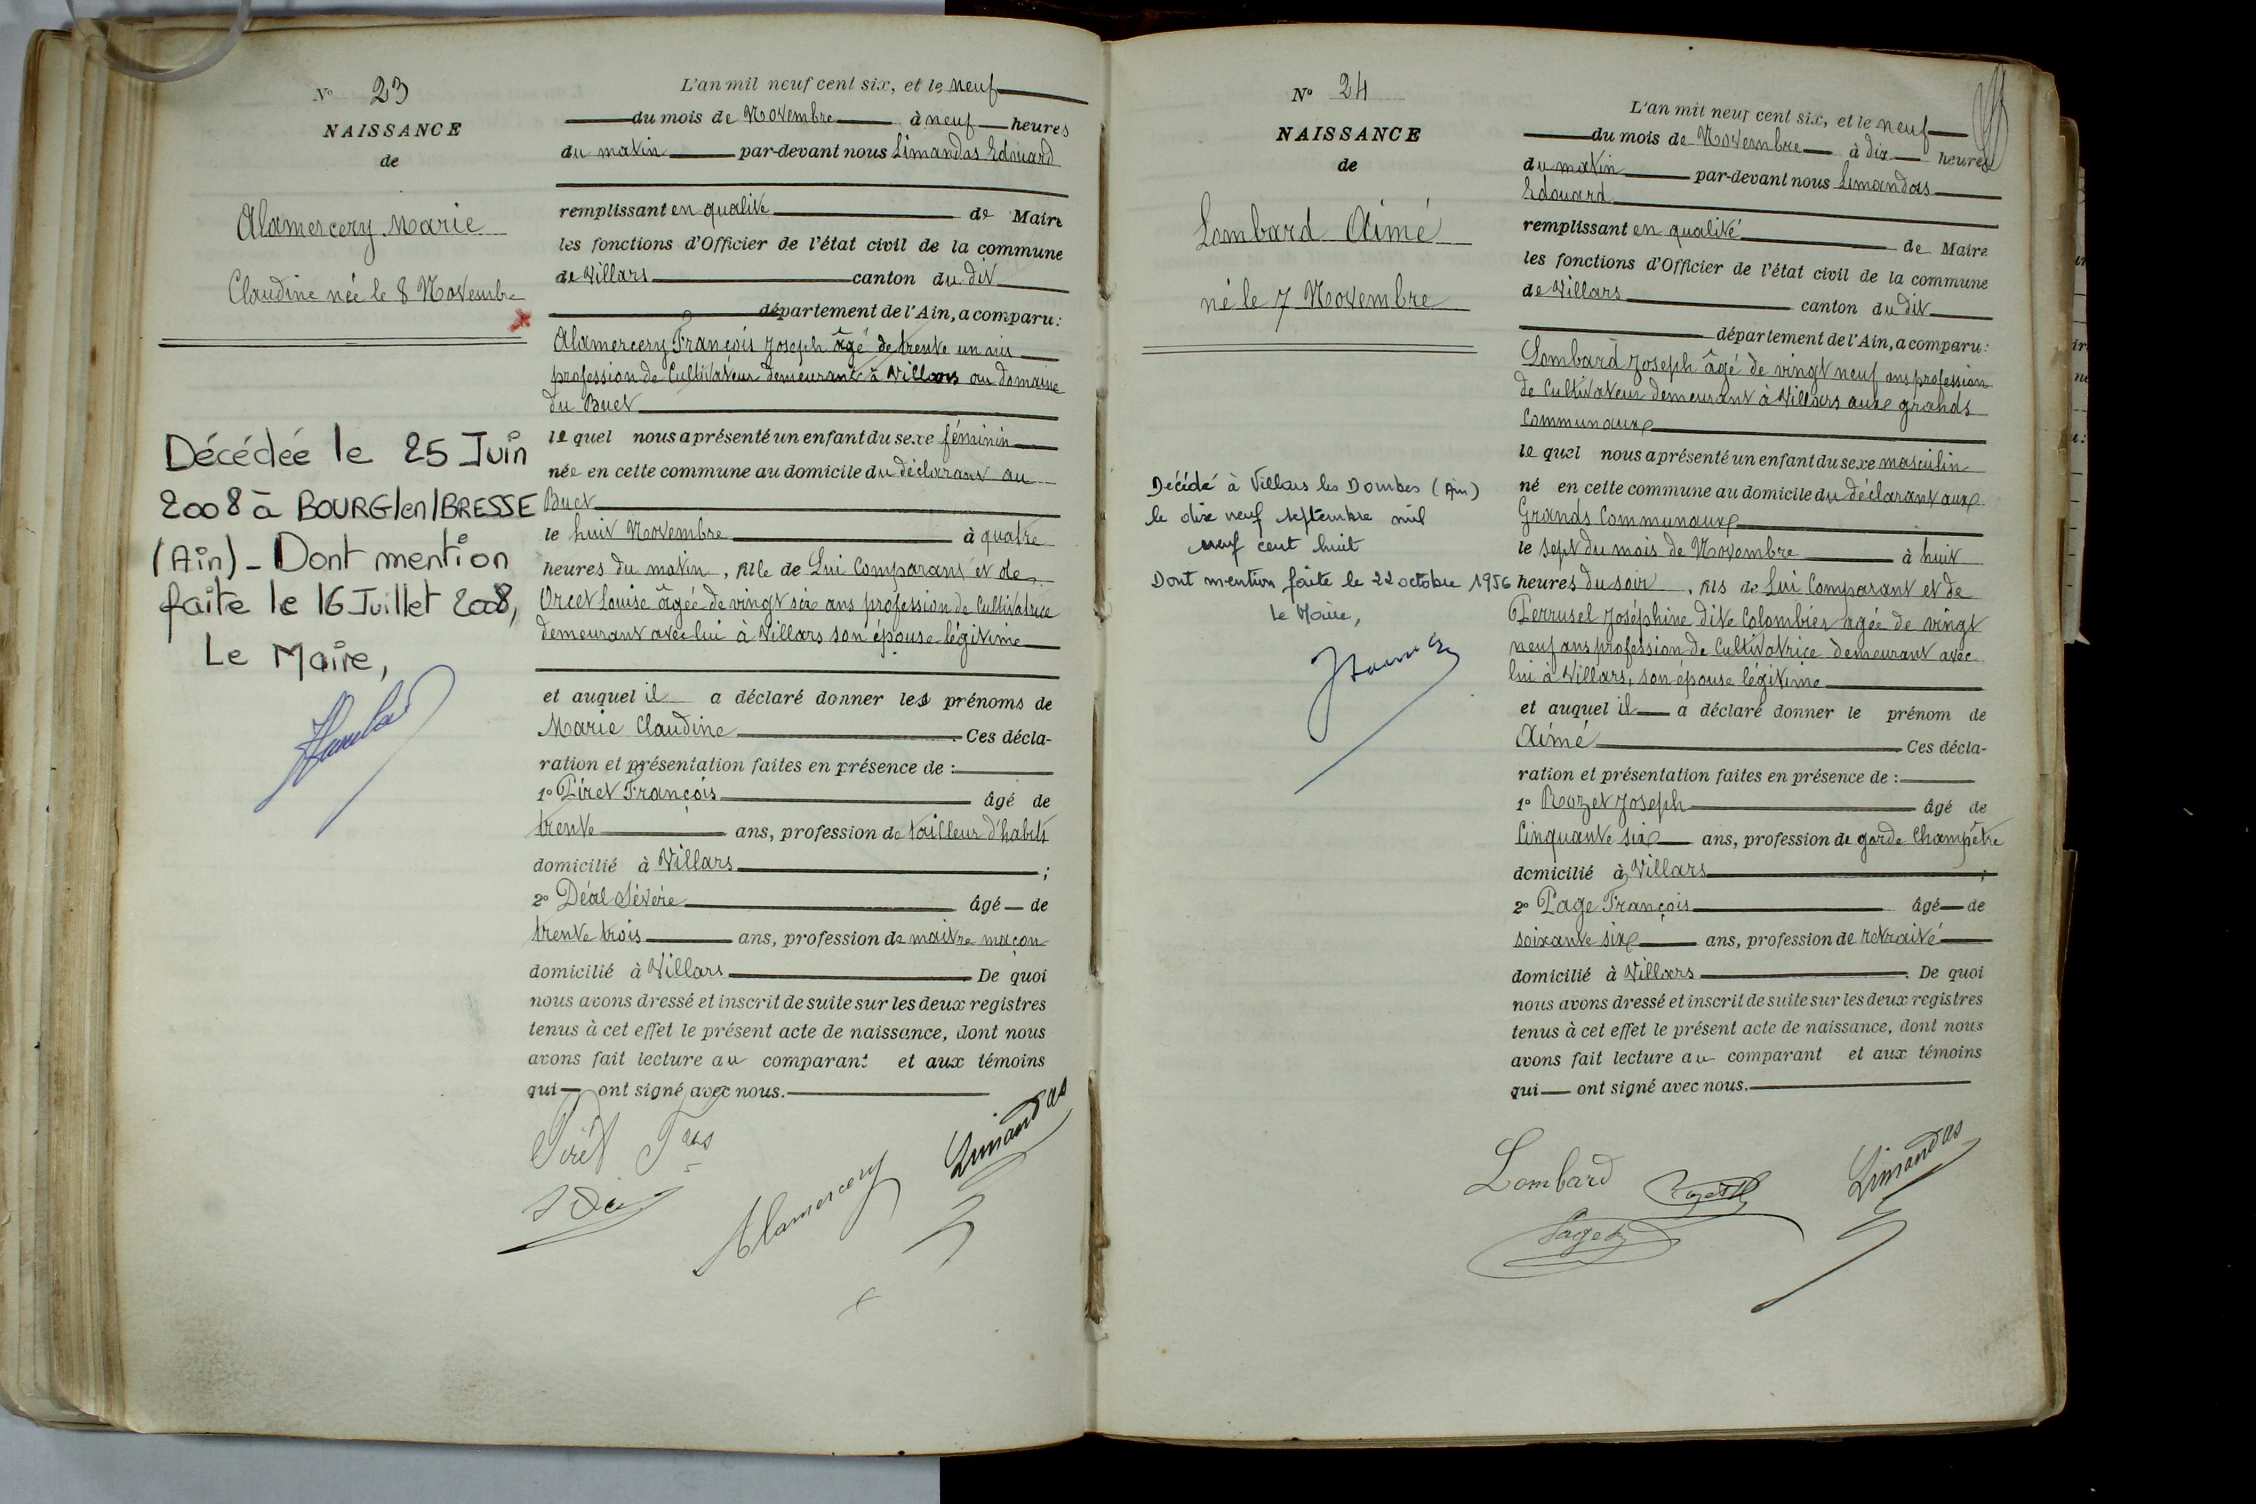 N° 23
NAISSANCE
de
Alamercery Marie
Claudine née le 8 Novembre
Décédée le 25 Juin
2008 à BOURG/en/BRESSE
(Ain) - Dont mention
faite le 16 Juillet 2008,
Le Maire,
L'an mil neuf cent six, et le neuf
du mois de Novembre à neuf heures
du matin par-devant nous Limandas Edouard
remplissant en qualité de Maire
les fonctions d'Officier de l'état civil de la commune
de Villars canton du dit
département de l'Ain, a comparu:
Alamercery François Joseph âgé de trente un ans
profession de Cultivateur demeurant à Villars au domaine
du Buet
le quel nous a présenté un enfant du sexe féminin
née en cette commune au domicile du déclarant au
Buet
le huit Novembre à quatre
heures du matin, fille de Lui Comparant et de
Orcet Louise âgée de vingt six ans profession de Cultivatrice
demeurant avec lui à Villars son épouse légitime
et auquel il a déclaré donner les prénoms de
Marie Claudine Ces décla-
ration et présentation faites en présence de :
1° Piret François âgé de
trente ans, profession de tailleur d'habits
domicilié à Villars ;
2° Déal Sévère âgé de
trente trois ans, profession de maitre maçon
domicilié à Villars De quoi
nous avons dressé et inscrit de suite sur les deux registres
tenus à cet effet le présent acte de naissance, dont nous
avons fait lecture au comparant et aux témoins
qui ont signé avec nous.
Piret Fçois
Alamercery
Limandas
N° 24
NAISSANCE
de
Lombard Aimé
né le 7 Novembre
Décédé à Villars les Dombes (Ain)
le dix neuf septembre mil
neuf cent huit
Dont mention faite le 22 octobre 1956
Le Maire,
L'an mil neuf cent six, et le neuf
du mois de Novembre à dix heures
du matin par-devant nous Limandas
Edouard
remplissant en qualité de Maire
les fonctions d'Officier de l'état civil de la commune
de Villars canton du dit
département de l'Ain, a comparu:
Lombard Joseph âgé de vingt neuf ans profession
de Cultivateur demeurant à Villars aux grands
Communaux
le quel nous a présenté un enfant du sexe masculin
né en cette commune au domicile du déclarant aux
Grands Communaux
le sept du mois de Novembre à huit
heures du soir, fils de Lui Comparant et de
Perrusel Joséphine dite Colombier agée de vingt
neuf ans profession de Cultivatrice demeurant avec
lui à Villars, son épouse légitime
et auquel il a déclaré donner le prénom de
Aimé Ces décla-
ration et présentation faites en présence de :
1° Rozet Joseph âgé de
Cinquante six ans, profession de garde Champêtre
domicilié à Villars ;
2° Page François âgé de
soixante six ans, profession de retraité
domicilié à Villars. De quoi
nous avons dressé et inscrit de suite sur les deux registres
tenus à cet effet le présent acte de naissance, dont nous
avons fait lecture au comparant et aux témoins
qui ont signé avec nous.
Lombard
Limandas
Page